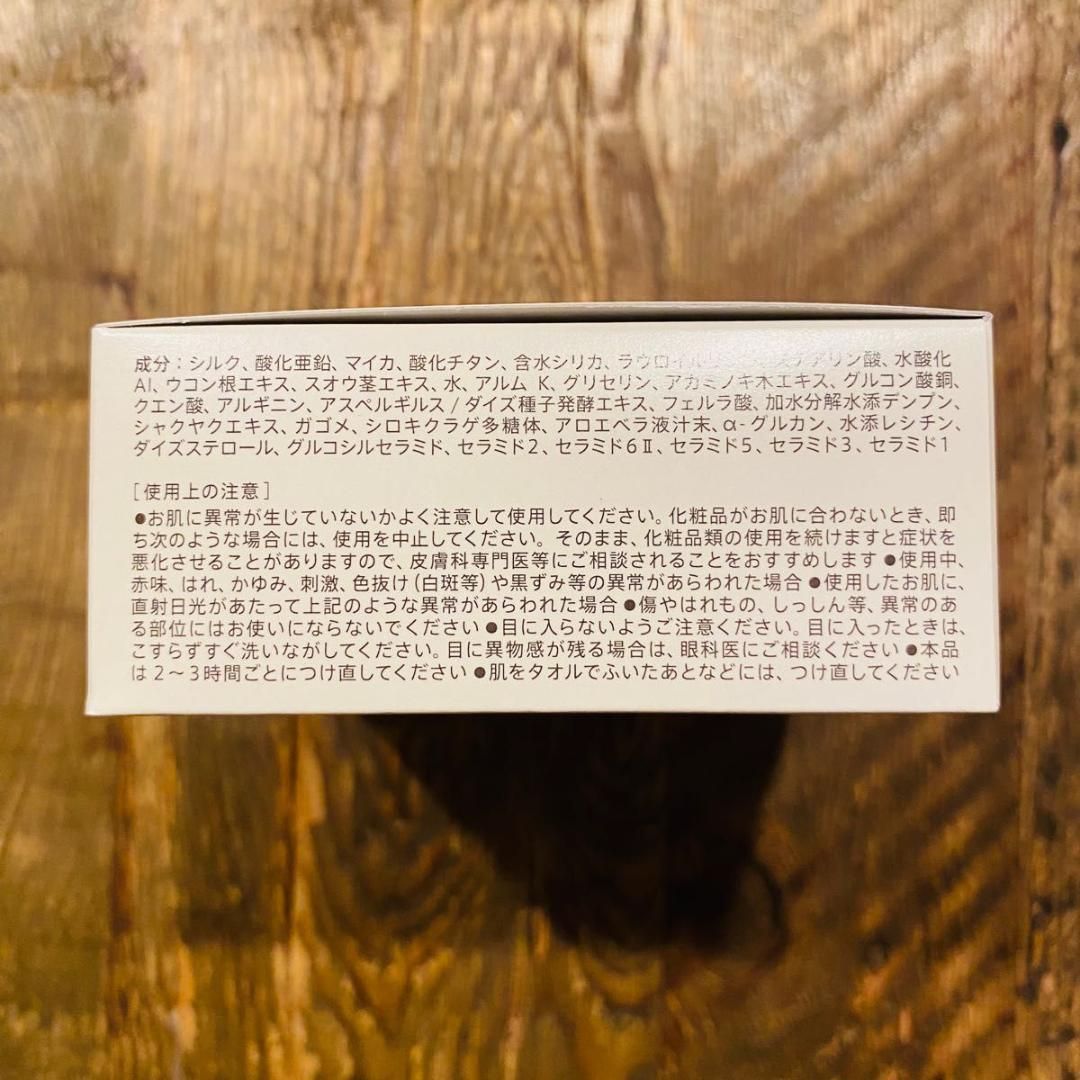 成分：シルク、酸化亜鉛、マイカ、酸化チタン、含水シリカ、ラウロイルリシン、ステアリン酸、水酸化
Al、ウコン根エキス、スオウ茎エキス、水、アルム K、グリセリン、アカミノキ木エキス、グルコン酸銅、
クエン酸、アルギニン、アスペルギルス / ダイズ種子発酵エキス、フェルラ酸、加水分解水添デンプン、
シャクヤクエキス、ガゴメ、シロキクラゲ多糖体、アロエベラ液汁末、α-グルカン、水添レシチン、
ダイズステロール、グルコシルセラミド、セラミド2、セラミド6Ⅱ、セラミド5、セラミド3、セラミド1
［使用上の注意］
●お肌に異常が生じていないかよく注意して使用してください。化粧品がお肌に合わないとき、即
ち次のような場合には、使用を中止してください。そのまま、化粧品類の使用を続けますと症状を
悪化させることがありますので、皮膚科専門医等にご相談されることをおすすめします ●使用中、
赤味、はれ、かゆみ、刺激、色抜け（白斑等）や黒ずみ等の異常があらわれた場合 ●使用したお肌に、
直射日光があたって上記のような異常があらわれた場合 ●傷やはれもの、しっしん等、異常のあ
る部位にはお使いにならないでください ●目に入らないようご注意ください。目に入ったときは、
こすらずすぐ洗いながしてください。目に異物感が残る場合は、眼科医にご相談ください ●本品
は２～３時間ごとにつけ直してください ●肌をタオルでふいたあとなどには、つけ直してください